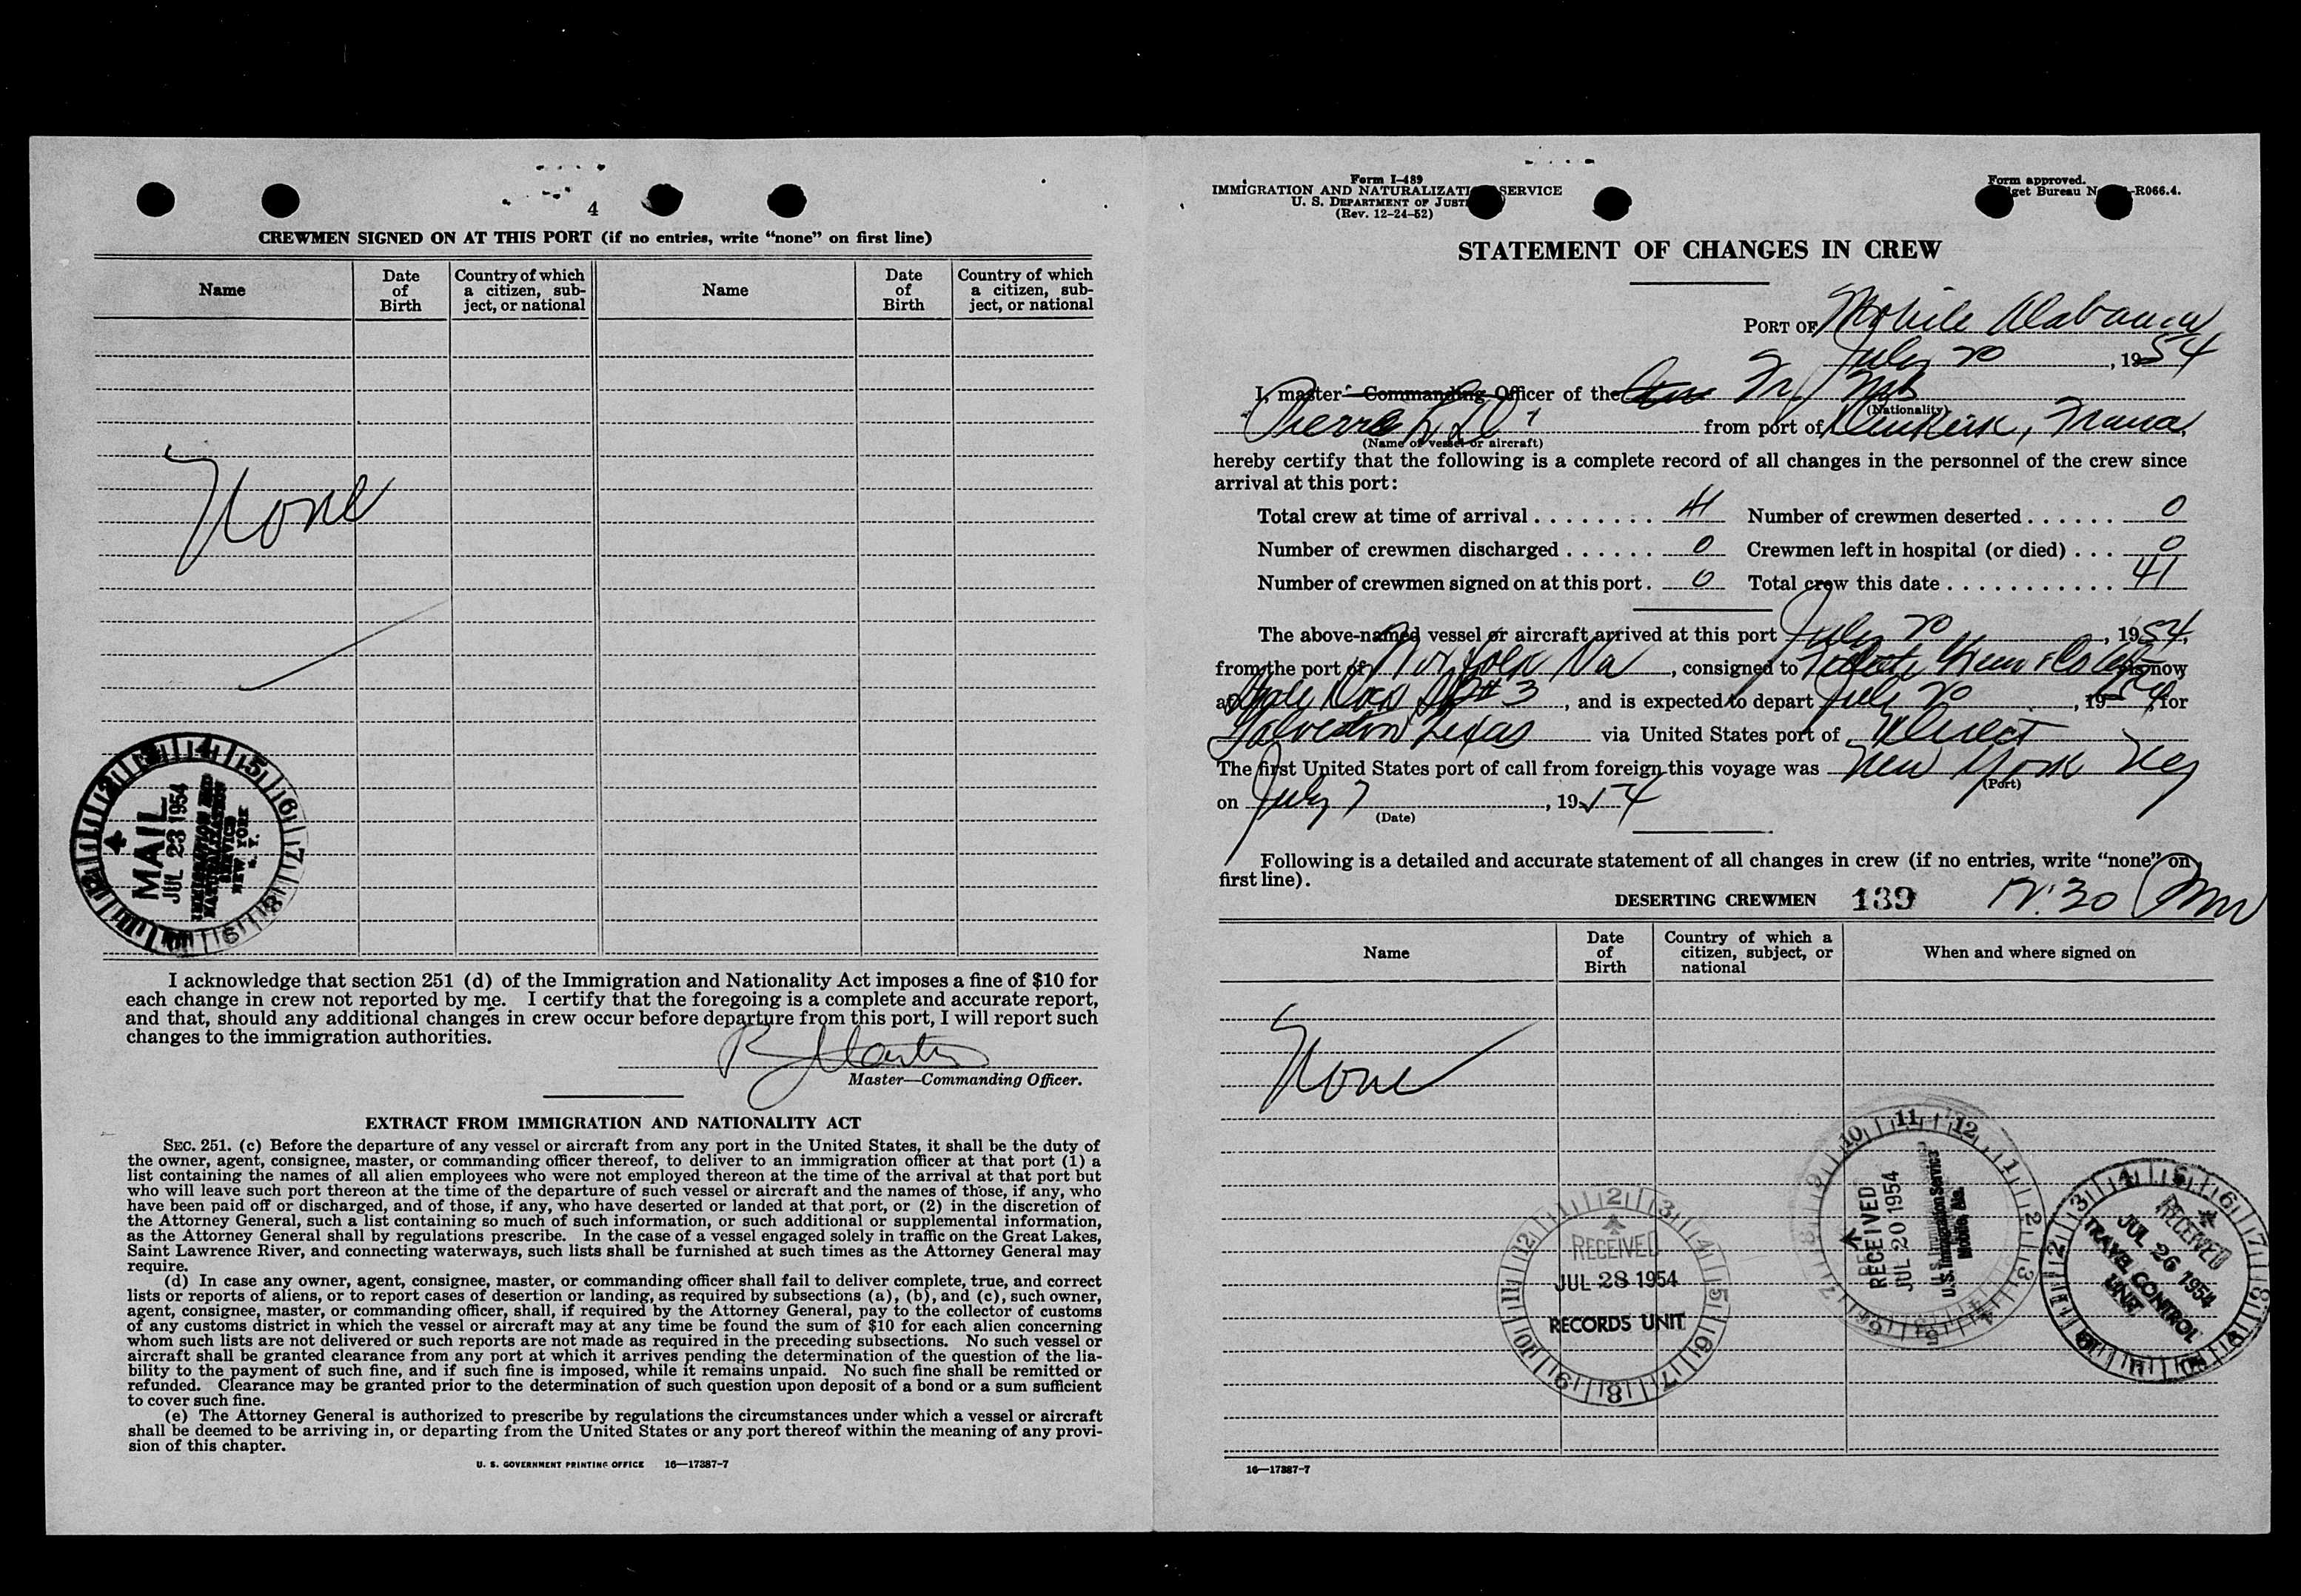 4
CREWMEN SIGNED ON AT THIS PORT (if no entries, write “none” on first line)
Name
Date of Birth
Country of which a citizen, subject, or national
Name
Date of Birth
Country of which a citizen, subject, or national
None
MAIL
JUL 23 1954
IMMIGRATION AND
NATURALIZATION
SERVICE
NEW YORK
N. Y.
I acknowledge that section 251 (d) of the Immigration and Nationality Act imposes a fine of $10 for
each change in crew not reported by me. I certify that the foregoing is a complete and accurate report,
and that, should any additional changes in crew occur before departure from this port, I will report such
changes to the immigration authorities.
Master—Commanding Officer.
EXTRACT FROM IMMIGRATION AND NATIONALITY ACT
SEC. 251. (c) Before the departure of any vessel or aircraft from any port in the United States, it shall be the duty of
the owner, agent, consignee, master, or commanding officer thereof, to deliver to an immigration officer at that port (1) a
list containing the names of all alien employees who were not employed thereon at the time of the arrival at that port but
who will leave such port thereon at the time of the departure of such vessel or aircraft and the names of those, if any, who
have been paid off or discharged, and of those, if any, who have deserted or landed at that port, or (2) in the discretion of
the Attorney General, such a list containing so much of such information, or such additional or supplemental information,
as the Attorney General shall by regulations prescribe. In the case of a vessel engaged solely in traffic on the Great Lakes,
Saint Lawrence River, and connecting waterways, such lists shall be furnished at such times as the Attorney General may
require.
(d) In case any owner, agent, consignee, master, or commanding officer shall fail to deliver complete, true, and correct
lists or reports of aliens, or to report cases of desertion or landing, as required by subsections (a), (b), and (c), such owner,
agent, consignee, master, or commanding officer, shall, if required by the Attorney General, pay to the collector of customs
of any customs district in which the vessel or aircraft may at any time be found the sum of $10 for each alien concerning
whom such lists are not delivered or such reports are not made as required in the preceding subsections. No such vessel or
aircraft shall be granted clearance from any port at which it arrives pending the determination of the question of the lia-
bility to the payment of such fine, and if such fine is imposed, while it remains unpaid. No such fine shall be remitted or
refunded. Clearance may be granted prior to the determination of such question upon deposit of a bond or a sum sufficient
to cover such fine.
(e) The Attorney General is authorized to prescribe by regulations the circumstances under which a vessel or aircraft
shall be deemed to be arriving in, or departing from the United States or any port thereof within the meaning of any provi-
sion of this chapter.
U. S. GOVERNMENT PRINTING OFFICE 16—17387-7
Form I-489
IMMIGRATION AND NATURALIZATI SERVICE
U. S. DEPARTMENT OF JUSTI
(Rev. 12-24-52)
Form approved.
get Bureau N -R066.4.
STATEMENT OF CHANGES IN CREW
PORT OF Mobile Alabama
July 20, 1954
I, master—Commanding Officer of the
(Nationality)
Pierre L.D. from port of Dunkirk, France,
(Name of vessel or aircraft)
hereby certify that the following is a complete record of all changes in the personnel of the crew since
arrival at this port:
Total crew at time of arrival . . . . . . . . 41 Number of crewmen deserted . . . . . . 0
Number of crewmen discharged . . . . . . 0 Crewmen left in hospital (or died) . . . 0
Number of crewmen signed on at this port . 0 Total crew this date . . . . . . . . . . . 41
The above-named vessel or aircraft arrived at this port July 20, 1954,
from the port of Norfolk Va, consigned to is now
at # 3, and is expected to depart July 20, 1954, for
Galveston Texas via United States port of Direct
The first United States port of call from foreign this voyage was New York
(Port)
on July 7, 1954
(Date)
Following is a detailed and accurate statement of all changes in crew (if no entries, write “none” on
first line).
DESERTING CREWMEN 139
Name
Date of Birth
Country of which a citizen, subject, or national
When and where signed on
None
RECEIVED
JUL 28 1954
RECORDS UNIT
RECEIVED
JUL 20 1954
U.S. Immigration Service
Mobile, Ala.
RECEIVED
JUL 26 1954
TRAVEL CONTROL
UNIT
16—17387-7